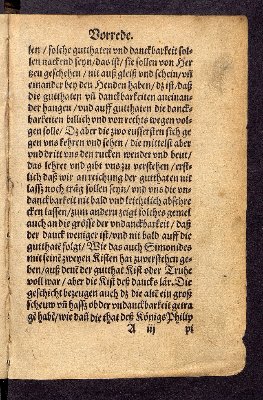 Vorrede.
len / solche gutthaten vnd danckbarkeit sol-
len nackend seyn/ das ist/ sie sollen von Her
tzen geschehen / nit auß gleiß vnd schein/ vñ
einander bey den Henden haben/ dz ist/ daß
die gutthaten vñ danckbarkeiten aneinan-
der hangen / vnd auff gutthaten die danck-
barkeiten billich vnd von rechts wegen vol-
gen solle/ Dz aber die zwo eussersten sich ge
gen vns kehren vnd sehen / die mittelst aber
vnd dritt vns den rucken wender vnd beut/
das lehret vnd gibt vns zu verstehen / erst-
lich daß wir an reichung der gutthaten nit
lassz noch träg sollen seyn/ vnd vns die vn-
danckbarkeit nit bald vnd leichtlich abschre
cken lassen/ zum andern zeigt solches gemel
auch an die grösse der vndanckbarkeit / daß
der danck weniger ist/ vnd nit bald auff die
gutthat folgt/ Wie das auch Simonides
mit seine zweyen Kisten hat zuverstehen ge-
ben/ auß denẽ der gutthat Kist oder Truhe
voll war / aber die Kist deß dancks lär. Die
geschicht bezeugen auch dz die altẽ ein groß
scheuw vñ hassz ob der vndanckbarkeit getra
gẽ habẽ/ wie dañ die that deß Königs Philip
A iij pi